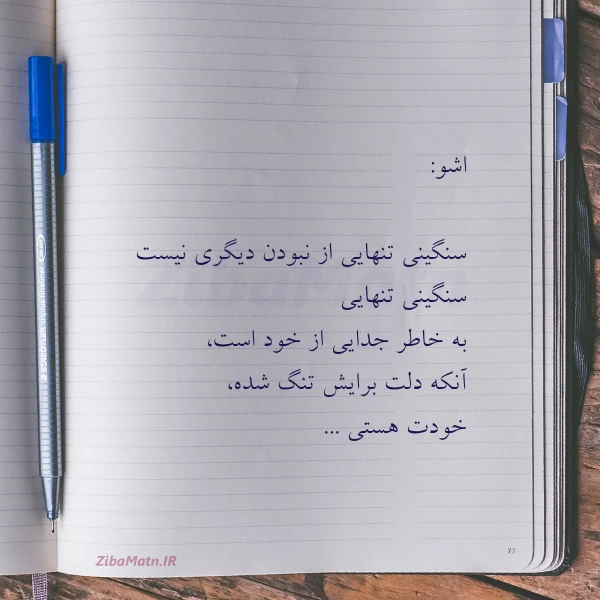 اشو:
سنگینی تنهایی از نبودن دیگری نیست
سنگینی تنهایی
به خاطر جدایی از خود است،
آنکه دلت برایش تنگ شده،
خودت هستی ...
77
ZibaMatn.IR